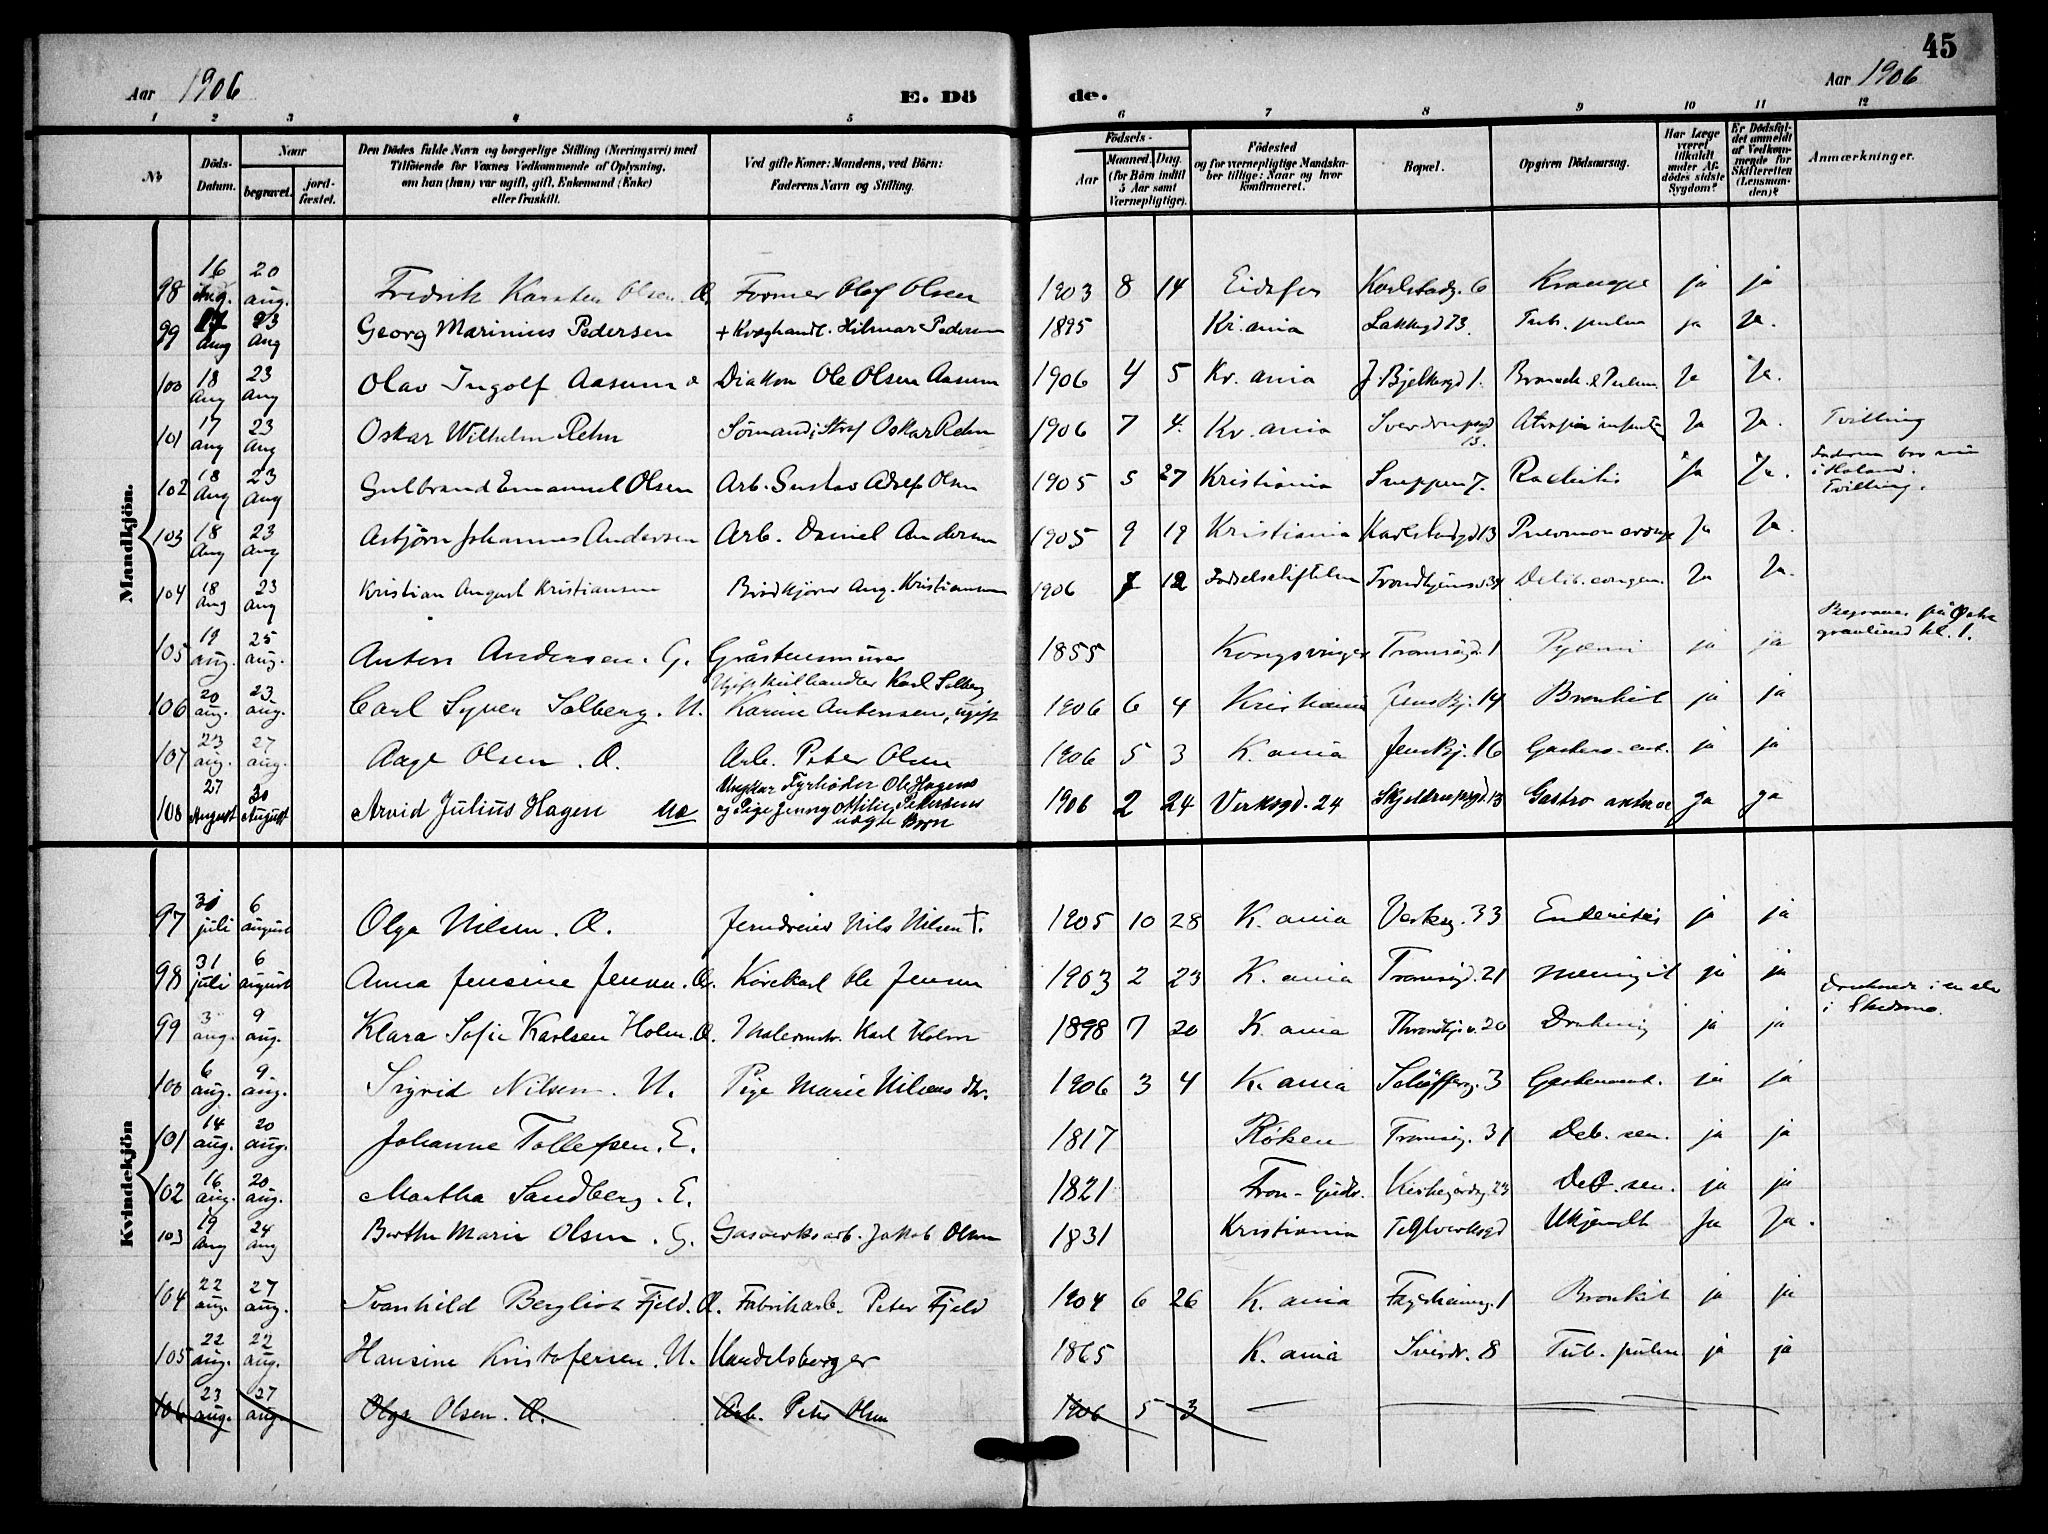 45
Aar 1906
E. Dö
de.
Aar 1906
1 2 3 4 5 6 7 8 9 10 11 12
No
Döds-Datum.
Naar
begravet.
jord-fæstet.
Den Dödes fulde Navn og borgerlige Stilling (Næringsvei) med
Tilföiende for Voxnes Vedkommende af Oplysning,
om han (hun) var ugift, gift, Enkemand (Enke)
eller fraskilt.
Ved gifte Koner: Mandens, ved Börn:
Faderens Navn og Stilling.
Födsels-
Aar
Maaned. Dag.
(for Börn indtil
5 Aar samt
Værnepligtige).
Födested
og for værnepligtige Mandska-
ber tillige: Naar og hvor
konfirmeret.
Bopæl.
Opgiven Dödsaarsag.
Har Læge
været
tilkaldt
under Af-
dödes sidste
Sygdom?
Er Dödsfal-
det anmeldt
af Vedkom-
mende for
Skifteretten
(Lensman-
den)?
Anmærkninger.
Mandkjön.
98 16 Aug. 20 aug. Fredrik Karsten Olsen. Æ. Former Olof Olsen 1903 8 14 Eidsfos Karlstadg. 6 Krampe ja ja
99 17 Aug 23 Aug Georg Marinius Pedersen + Kvæghandl. Hilmar Pedersen 1895 Kr.ania Lakkegd 73. Tub. pulm ja Ja.
100 18 Aug 23 Aug Olav Ingolf Aasum Æ Diakon Ole Olsen Aasum 1906 4 5 Kr. ania J. Bjelkesgd 1. Bronch. & Pulm. Ja Ja.
101 17 aug 23 Aug Oskar Wilhelm Rehn Sömand Oskar Rehn 1906 7 4. Kr. ania Sverdrupsgd 13. Atrofia infantum Ja Ja. Tvilling
102 18 Aug 23 Aug Gulbrand Emanuel Olsen Arb. Gustav Adolf Olsen 1905 5 27 Kristiania 7. Rachitis Ja Ja. Tvilling.
103 18 Aug 23 Aug Asbjörn Johannes Andersen Arb. Daniel Andersen 1905 9 19 Kristiania Karlstadgd 13 Pneumon croup. Ja Ja.
104 18 Aug 23 aug Kristian August Kristiansen Brödkjörer Aug. Kristiansen 1906 7 12 Fødselsstiftelsen Trondhjemsv. 34 Debil. congen. Ja Ja.
105 19 aug. 25 aug. Anton Andersen. G. Gråstensmurer 1855 Kongsvinger Tromsögd. 1 Pyæmi ja ja Begraves på Østre gravlund kl. 1.
106 20 aug. 23 aug. Carl Syver Solberg. U. Ugift Kulhandler Karl Solberg Karine Antonsen, ugift 1906 6 4 Kristiania Jens Bj. 14 Bronkit ja ja
107 23 aug. 27 aug. Aage Olsen. Æ. Arb. Peter Olsen 1906 5 3 K. ania Jens Bj. 16 Gastero-ent. ja ja
108 27 August 30 August Arvid Julius Hagen uæ Ungkar Fyrböder Ole Hagens og Pige Jenny Otilie Petersens uægte Barn 1906 2 24 Verksgd. 24 Skjeldrupsgd. 13 Gastro ja ja
Kvindekjön
97 31 juli 6 august Olga Nilsen. Æ. Jerndreier Nils Nilsen †. 1905 10 28 K. ania Verksg. 33 Enteritis ja ja
98 31 juli 6 august Anna Jensine Jensen. Æ. Körekarl Ole Jensen 1903 2 23 K. ania Tromsögd. 21 meningit ja ja
99 3 aug. 9 aug. Klara Sofie Karlsen Holm. Æ. Malermstr. Karl Holm 1898 7 20 K. ania Throndhj.v. 20 Drukning ja ja Druknede i en elv i Skedsmo.
100 6 aug. 9 aug. Sigrid Nilsen. U. Pige Marie Nilsens dtr. 1906 3 4 K. ania Schöfferg. 3 Gasteroent. ja ja
101 14 aug. 20 aug. Johanne Tollefsen. E. 1817 Röken Tromsög. 31 Deb. sen. ja ja
102 16 aug. 20 aug. Martha Sandberg. E. 1821 Fron-Gudbr. Kirkegårdsg. 23 Deb. sen. ja ja
103 19 Aug 24 aug Berthe Marie Olsen. G. Gasverksarb. Jakob Olsen 1831 Kristiania Teglverksgd Ukjendt Ja Ja.
104 22 aug. 27 aug. Svanhild Bergliot Fjeld. Æ. Fabrikarb. Peter Fjeld 1904 6 26 K. ania Fagerheimg. 1 Bronkit ja ja
105 22 aug. 22 aug. Hansine Kristofersen. U. Handelsborger 1865 K. ania Sverdr. 8 Tub. pulm. ja ja
106 23 aug. 27 aug. Olga Olsen. Æ. Arb. Peter Olsen 1906 5 3